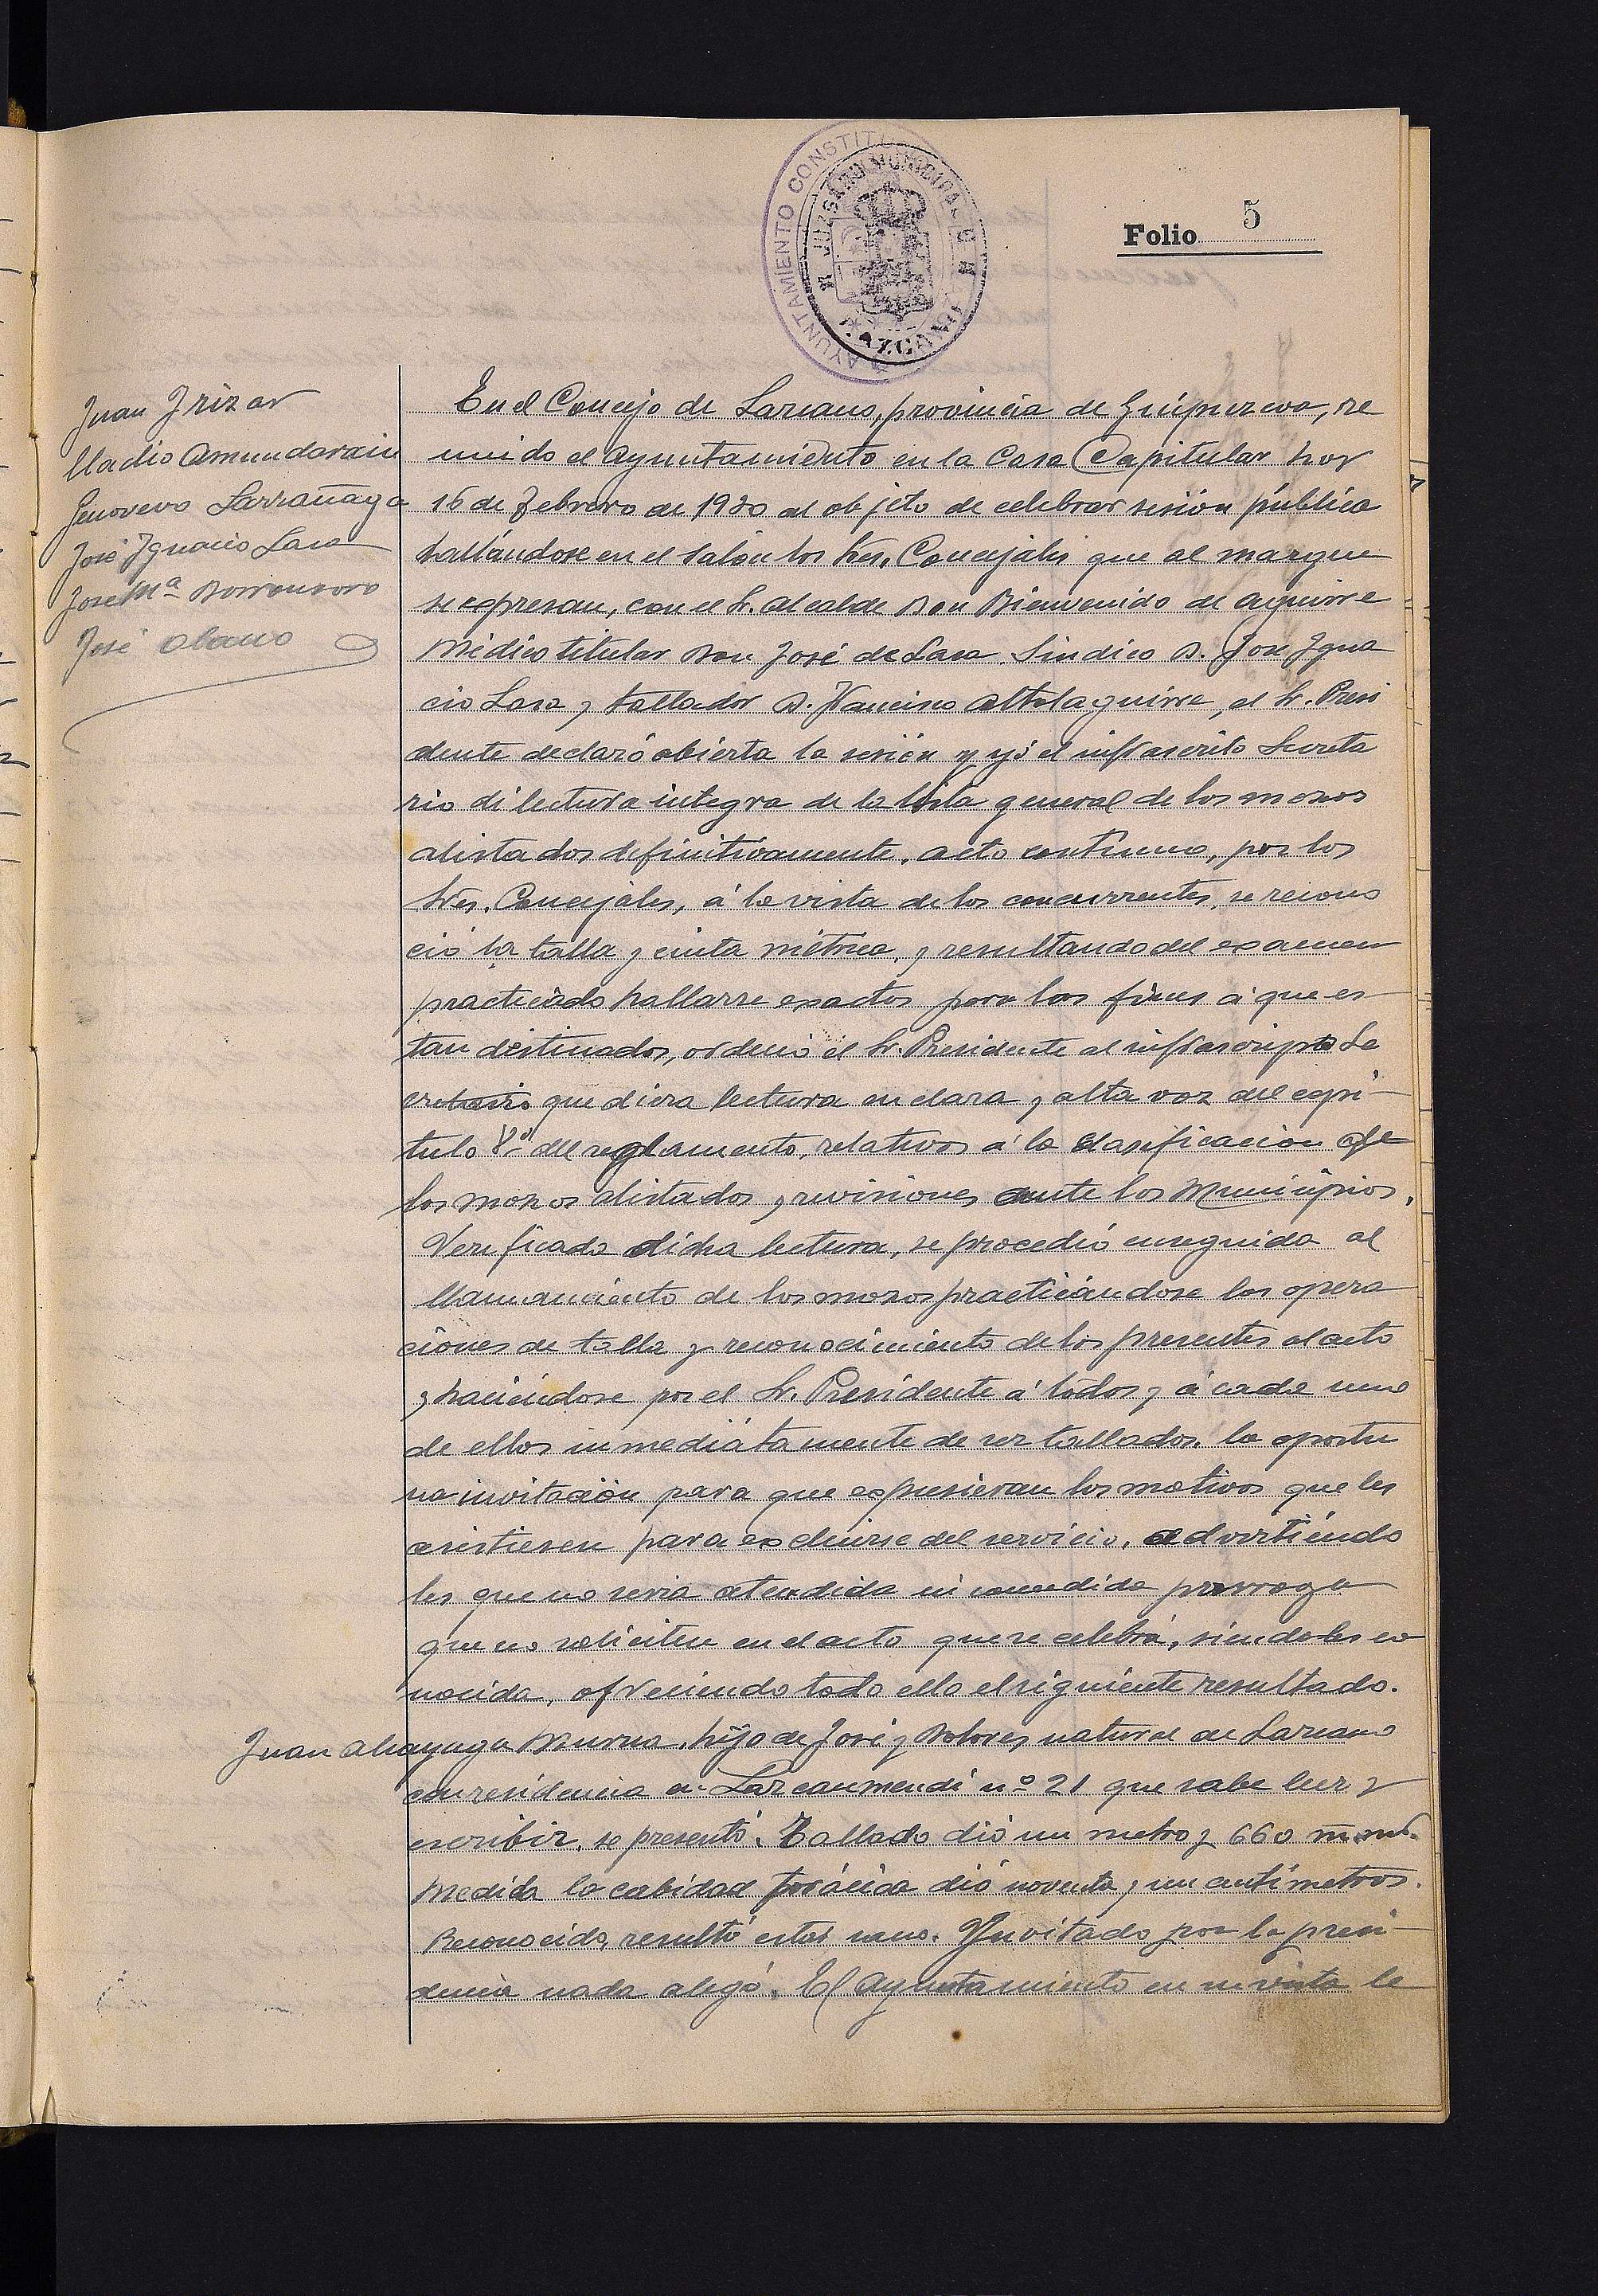 Folio 5
AYUNTAMIENTO CONSTITU
JUZGADO MUNICIPAL
LAZCANO
Juan Irizar
Eladio Amundarain
Genovevo Larrañaga
José Ygnacio Lasa
José Mª Dorronsoro
José Olano
En el Concejo de Lazcano, provincia de Guipuzcoa, re
unido el Ayuntamiento en la Casa Capitular hoy
16 de Febrero de 1930 al objeto de celebrar sesión pública
hallándose en el Salón los Sres. Concejales que al margen
se expresan, con el Sr. Alcalde Don Bienvenido de Aguirre
Médico titular Don José de Lasa, Sindico D. José Ygna
cio Lasa y tallador D. Narciso Altolaguirre, el Sr. Presi
dente declaró abierta la sesión y yó el infrascrito Secreta
rio di lectura integra de la lista general de los mozos
alistados definitivamente. Acto continuo, por los
Sres. Concejales, á la vista de los concurrentes, se recono
ció la talla y cinta métrica, y resultando del examen
practicado hallarse exactos para los fines á que es
tan destinados, ordenó el Sr. Presidente al infrascripto Se
cretario que diera lectura en clara y alta voz del capi-
tulo 8º del reglamento, relativos á la clasificación de
los mozos alistados y revisiones ante los Municipios.
Verificada dicha lectura, se procedió enseguida al
llamamiento de los mozos practicándose las opera
ciones de talla y reconocimiento de los presentes al acto
y haciéndose por el Sr. Presidente á todos y á cada uno
de ellos inmediátamente de ser tallados, la oportu
na invitación para que expusieran los motivos que les
asistiesen para excluirse del servicio, advirtiéndo
les que no seria atendida ni concedida prorroga
que no soliciten en el acto que se celebra, siendoles co
nocida, ofreciendo todo ello el siguiente resultado.
Juan hijo de José y Dolores natural de Lazcano
con residencia en Lazcanmendi nº 21 que sabe leer y
escribir, se presentó. Tallado dió un metro y 660
Medida la cabidad torácica dió noventa y un centímetros.
Reconocido, resultó estar sano. Ynvitado por la presi-
dencia nada alegó. El Ayuntamiento en su vista le